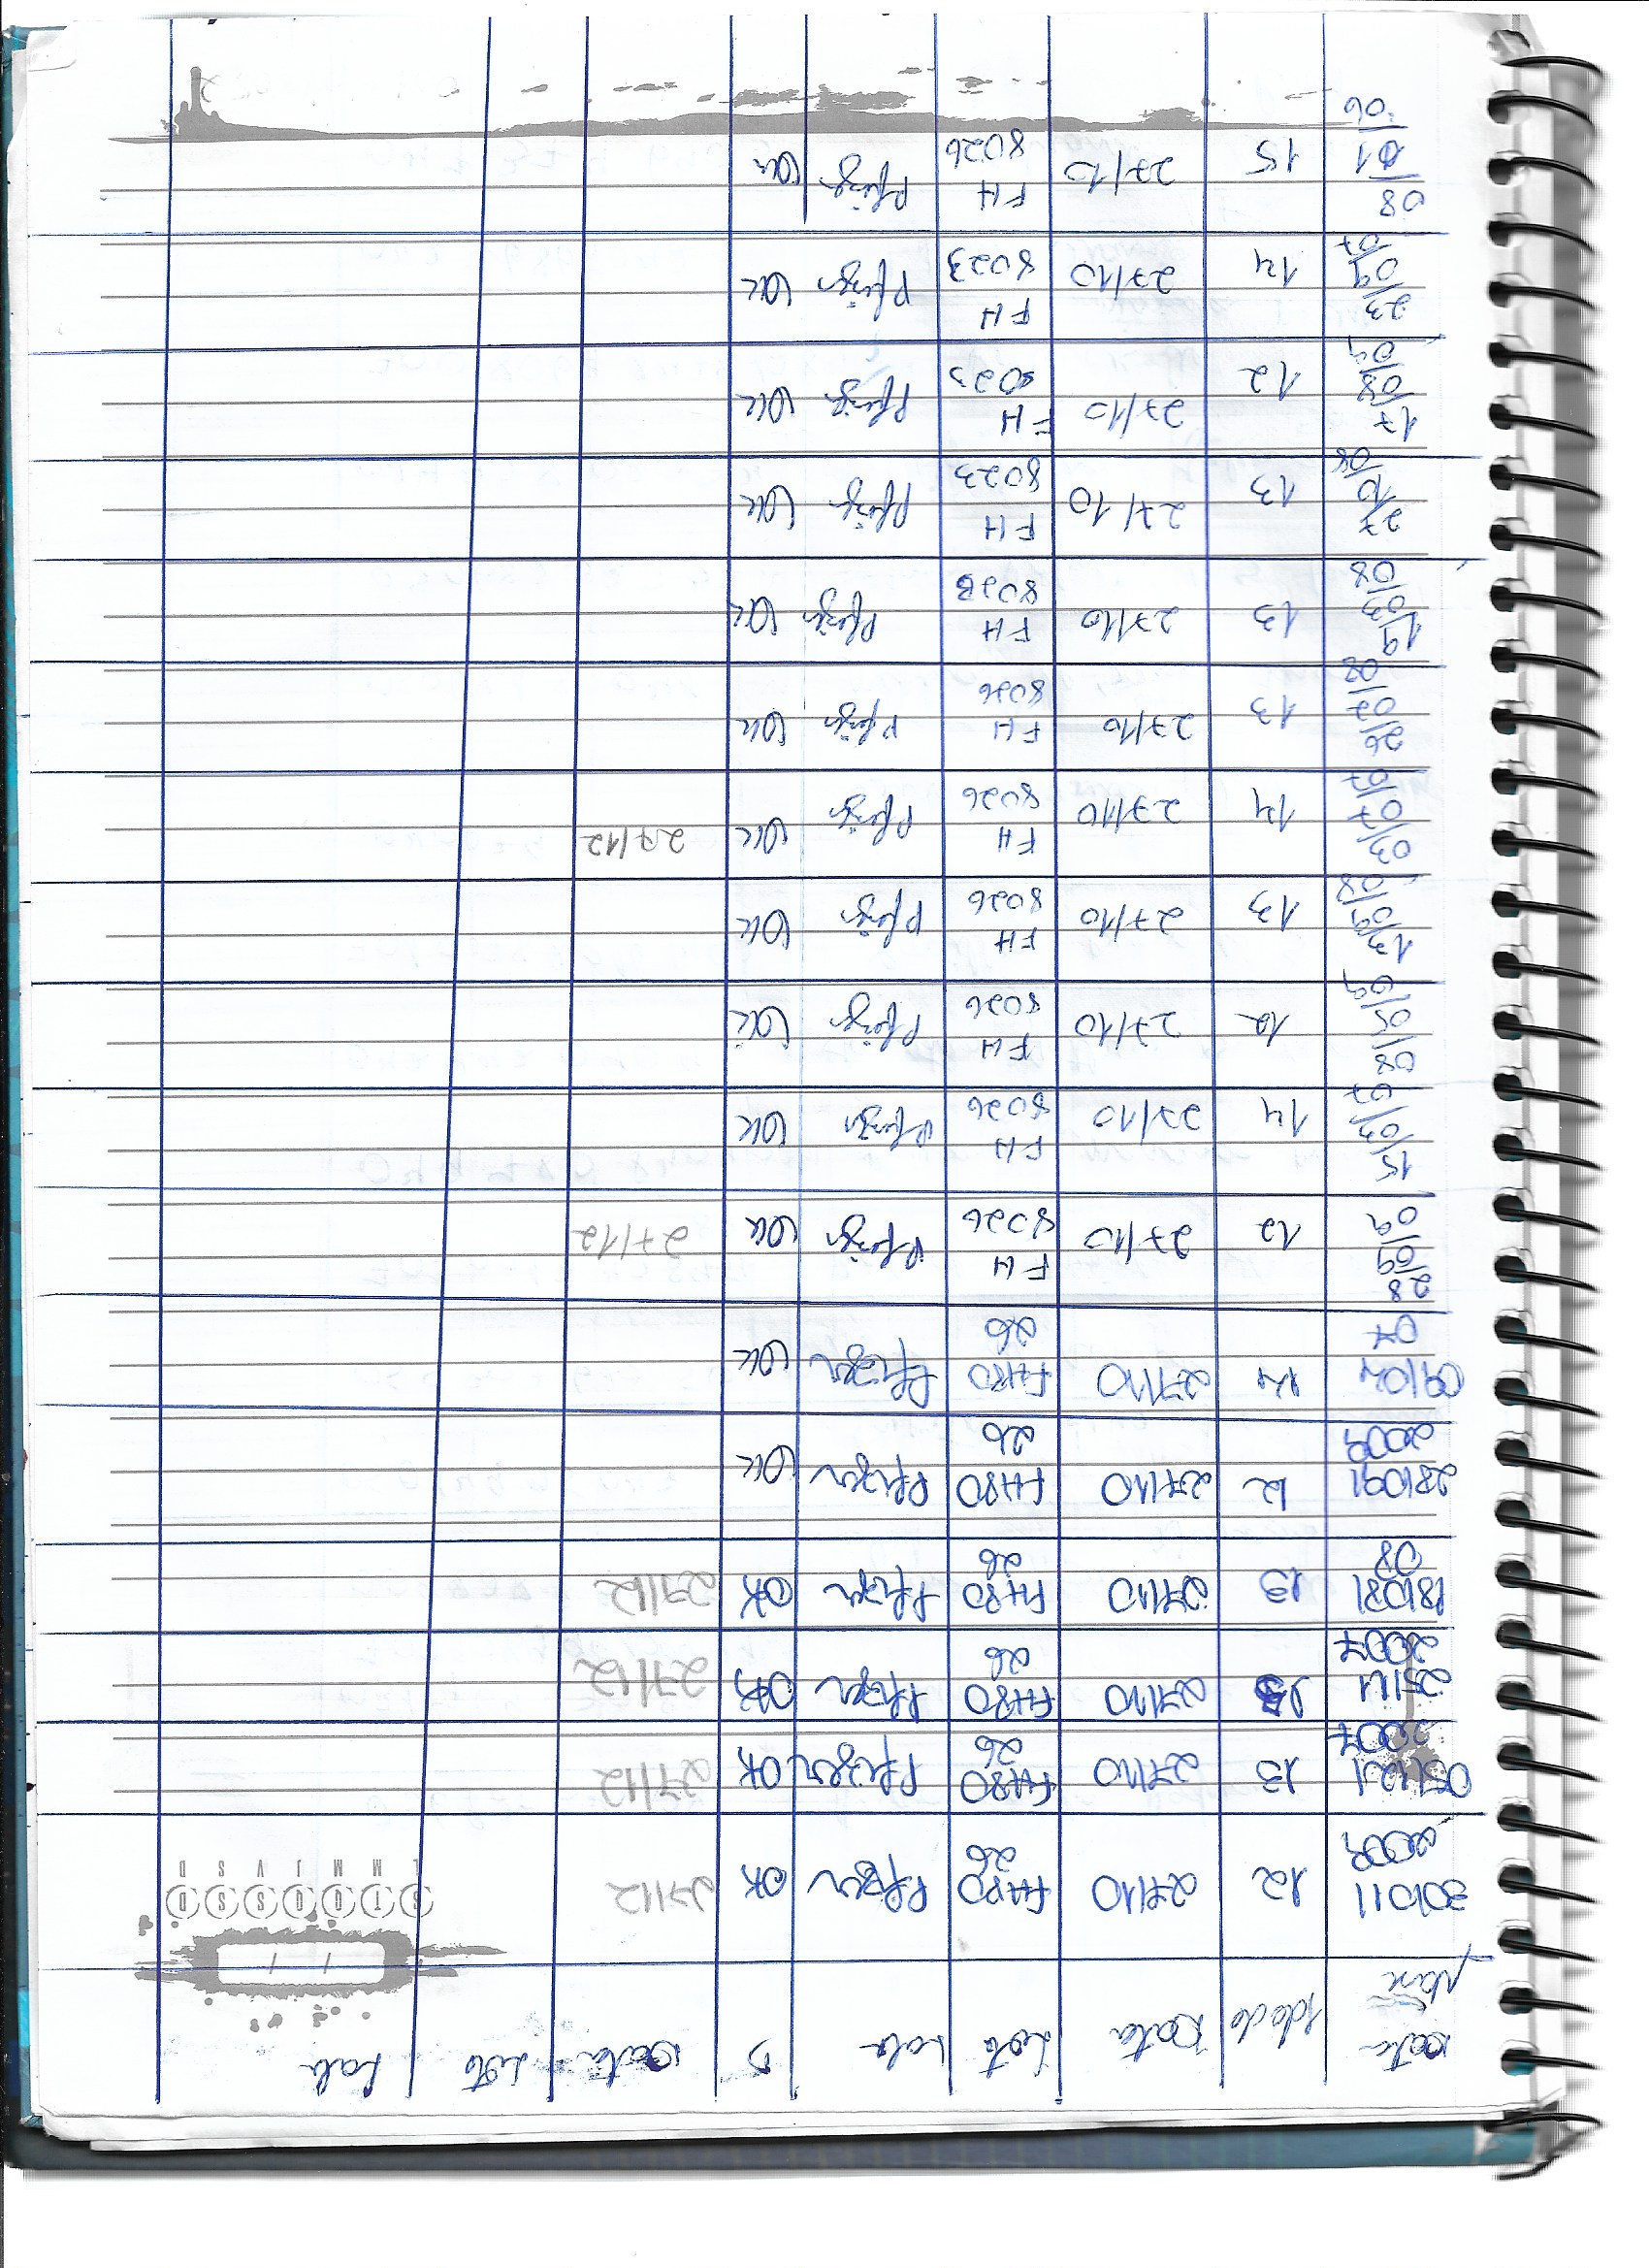 Data Nasc Idade Data Lote Lab D Data Lote Lab
/ /
S T Q Q S S D
L M M J V S D
30/01/ 12 27/10 FH80 Pfizer OK 27/12
2009 26
05/12/ 13 27/10 FH80 Pfizer OK 27/12
2007 26
25/11/ 13 27/10 FH80 Pfizer OK 27/12
2007 26
18/08/ 13 27/10 FH80 Pfizer OK 27/12
08 26
28/09/ 12 27/10 FH80 Pfizer OK
2009 26
09/04/ 14 27/10 FH80 Pfizer OK
07 26
28/09/ 12 27/10 FH Pfizer OK 27/12
09 8026
15/03/ 14 27/10 FH Pfizer OK
07 8026
08/05/ 12 27/10 FH Pfizer OK
09 8026
13/09/ 13 27/10 FH Pfizer OK
08 8026
03/07/ 14 27/10 FH Pfizer OK 27/12
07 8026
26/02/ 13 27/10 FH Pfizer OK
08 8026
19/03/ 13 27/10 FH Pfizer OK
08 8023
27/10/ 13 27/10 FH Pfizer OK
08 8023
17/08/ 12 27/10 FH Pfizer OK
09 8023
23/09/ 14 27/10 FH Pfizer OK
07 8023
08/01/ 15 27/10 FH Pfizer OK
06 8026